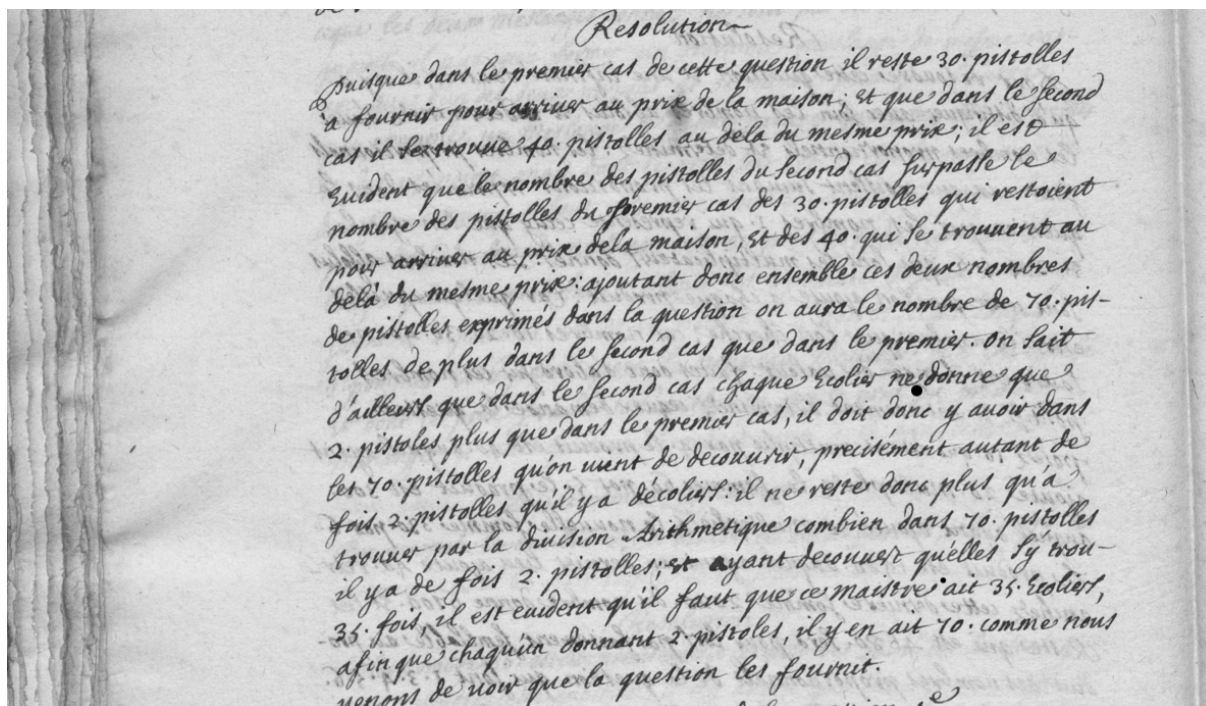 Resolution
Puisque dans le premier cas de cette question il reste 30. pistolles
a fournir pour arriver au prix de la maison; et que dans le second
cas il se trouve 40. pistolles au dela du mesme prix; il est
evident que le nombre des pistolles du second cas surpasse le
nombre des pistolles du premier cas des 30. pistolles qui restoient
pour arriver au prix dela maison, et des 40. qui se trouvent au
delà du mesme prix: ajoutant donc ensemble ces deux nombres
de pistolles exprimés dans la question on aura le nombre de 70. pis-
tolles de plus dans le second cas que dans le premier. on sait
d'ailleurs que dans le second cas chaque Ecolier ne donne que
2. pistoles plus que dans le premier cas, il doit donc y avoir dans
les 70. pistolles qu'on vient de decouvrir, precisément autant de
fois 2. pistolles qu'il y a décoliers: il ne reste donc plus qu'a
trouver par la division Arithmetique combien dans 70. pistolles
il y a de fois 2. pistolles; et ayant decouvert qu'elles s'y trou-
35. fois, il est evident qu'il faut que ce maistre ait 35. Ecoliers,
afin que chaqu'un donnant 2. pistoles, il y en ait 70. comme nous
venons de voir que la question les fournit.